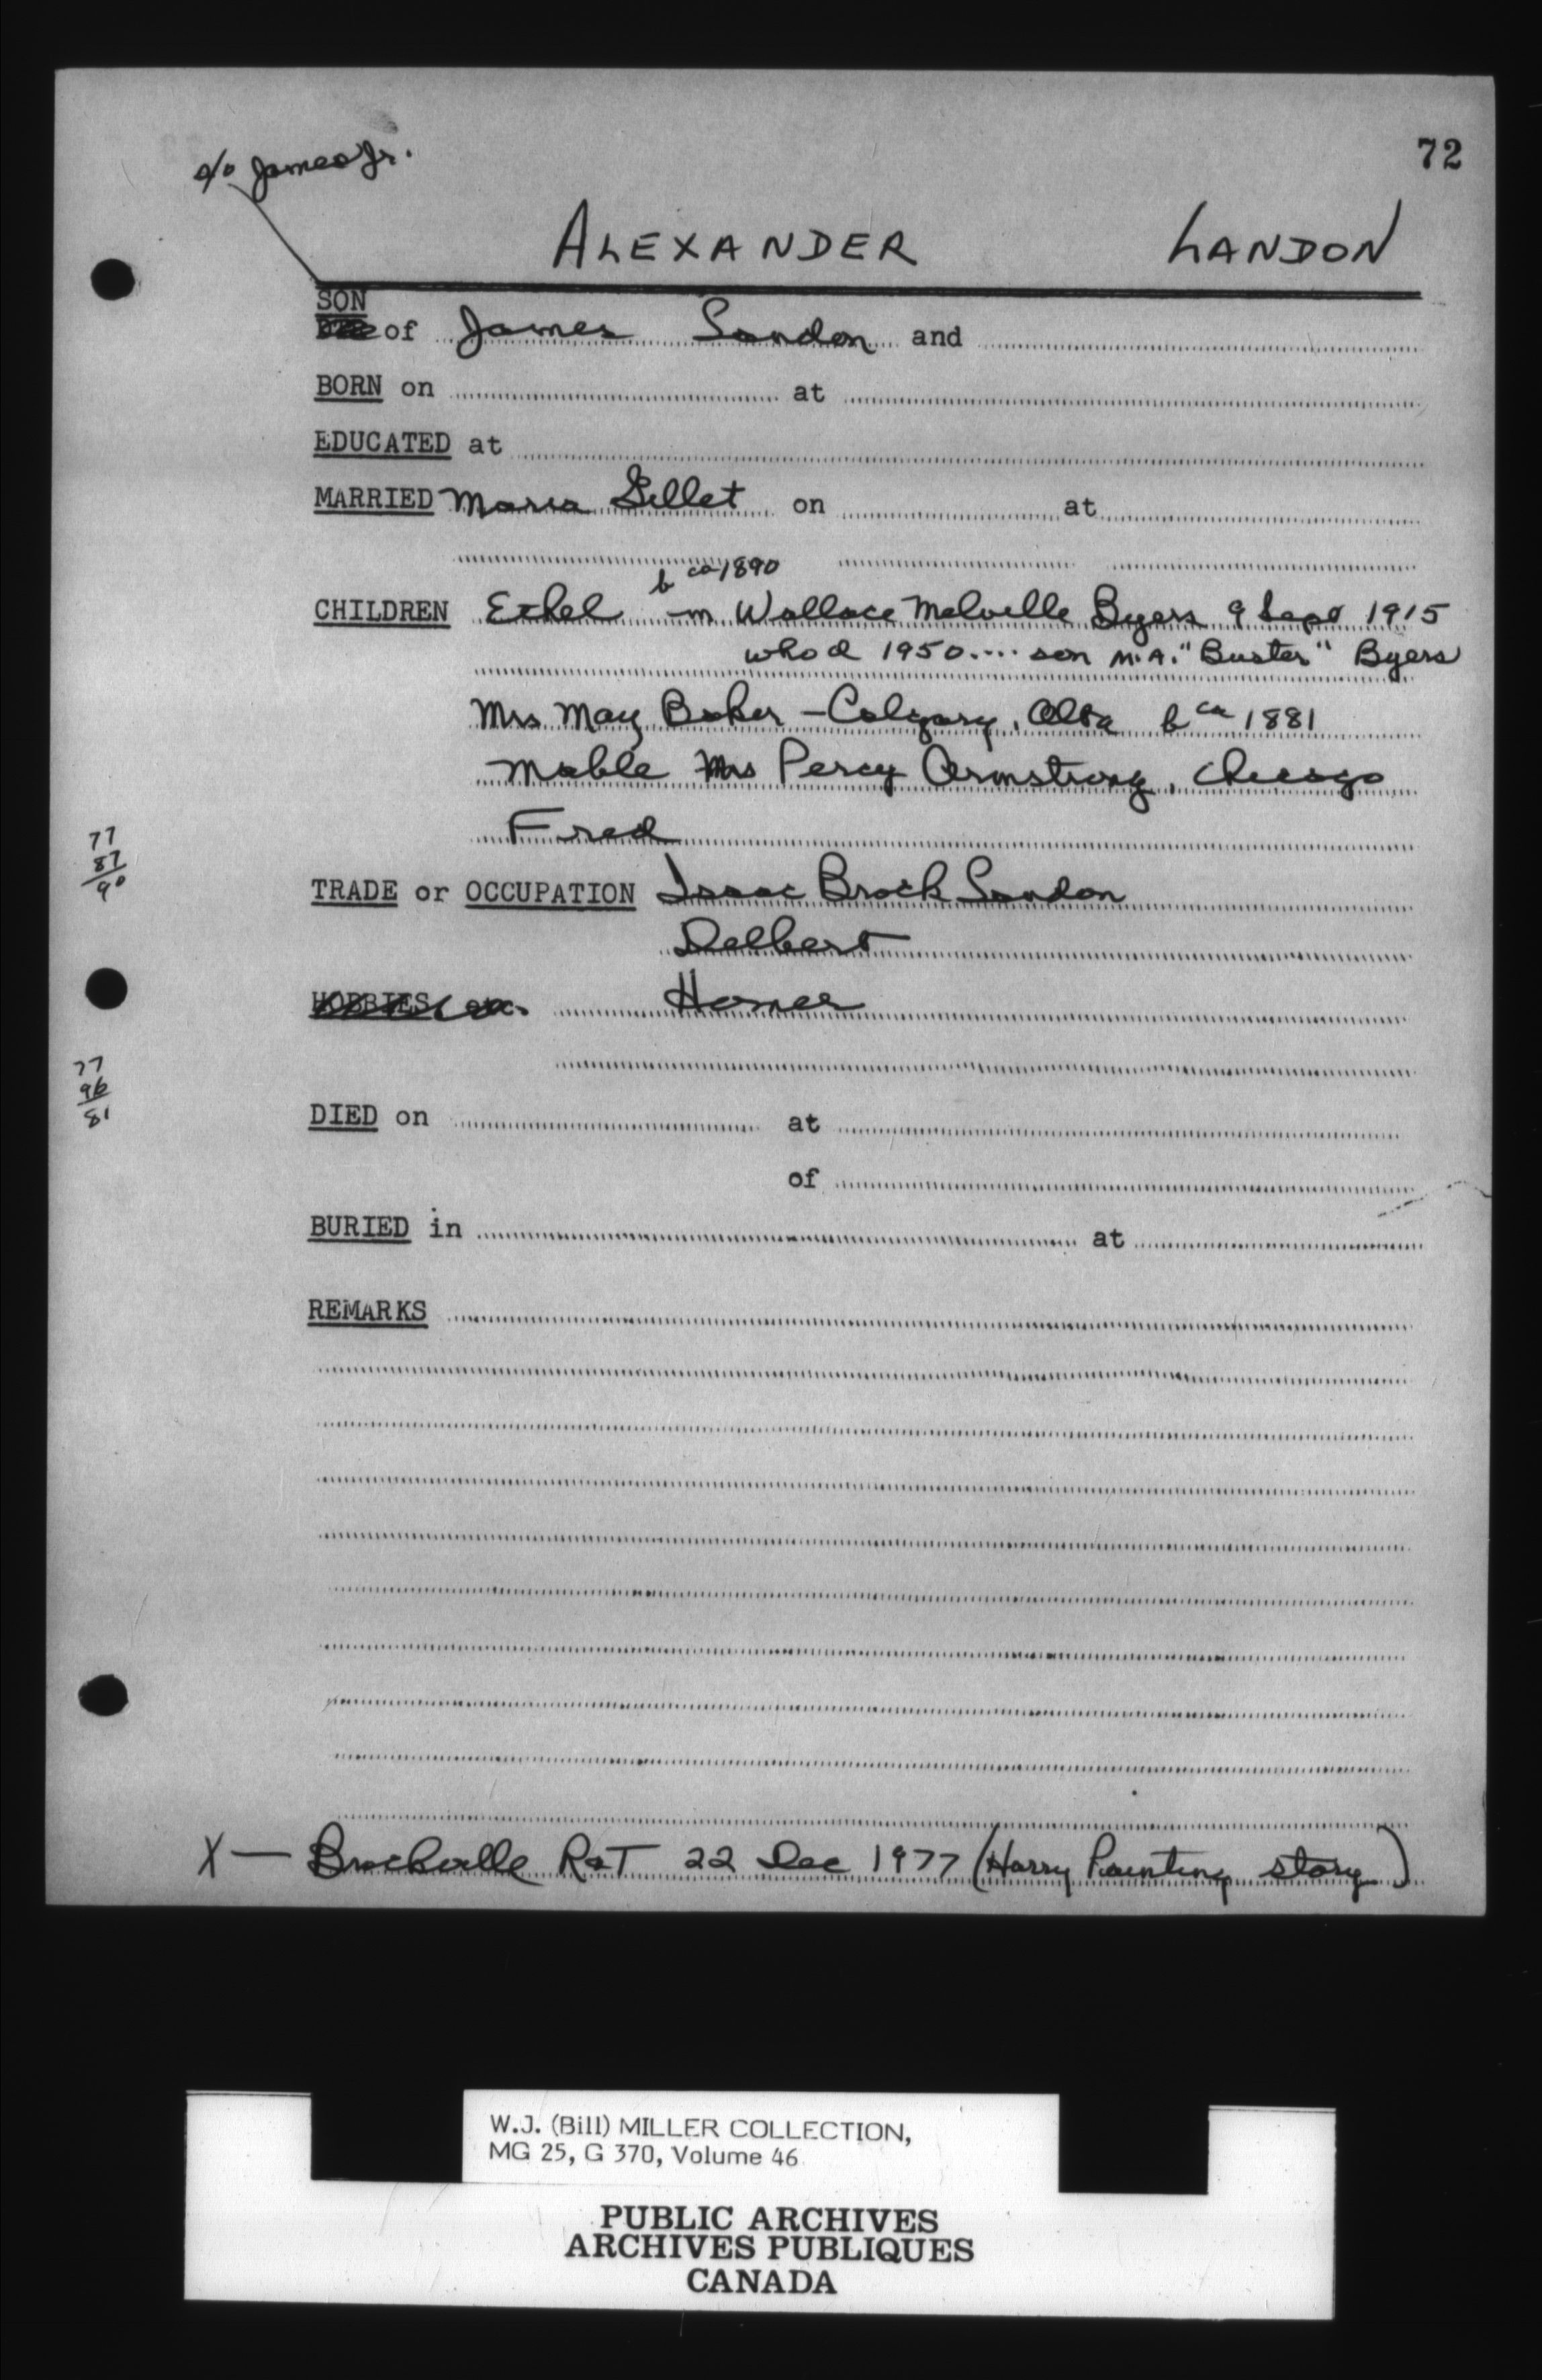 s/o James Jr.
72
ALEXANDER LANDON
SON
of James Landon and
BORN on at
EDUCATED at
MARRIED Maria Gillet on at
b ca 1890
CHILDREN Ethel m Wallace Melville Byers 9 Sept 1915
who d 1950.... son M.A. "Buster" Byers
Mrs May Baker - Calgary, Alta b ca 1881
Mable Mrs Percy Armstrong, Chicago
Fred
77
87
90
TRADE or OCCUPATION Isaac Brock Landon
Delbert
HOBBIES etc. Homer
77
96
81
DIED on at
of
BURIED in at
REMARKS
X — Brockville R&T 22 Dec 1977 (Harry Painting story)
W.J. (Bill) MILLER COLLECTION,
MG 25, G 370, Volume 46
PUBLIC ARCHIVES
ARCHIVES PUBLIQUES
CANADA